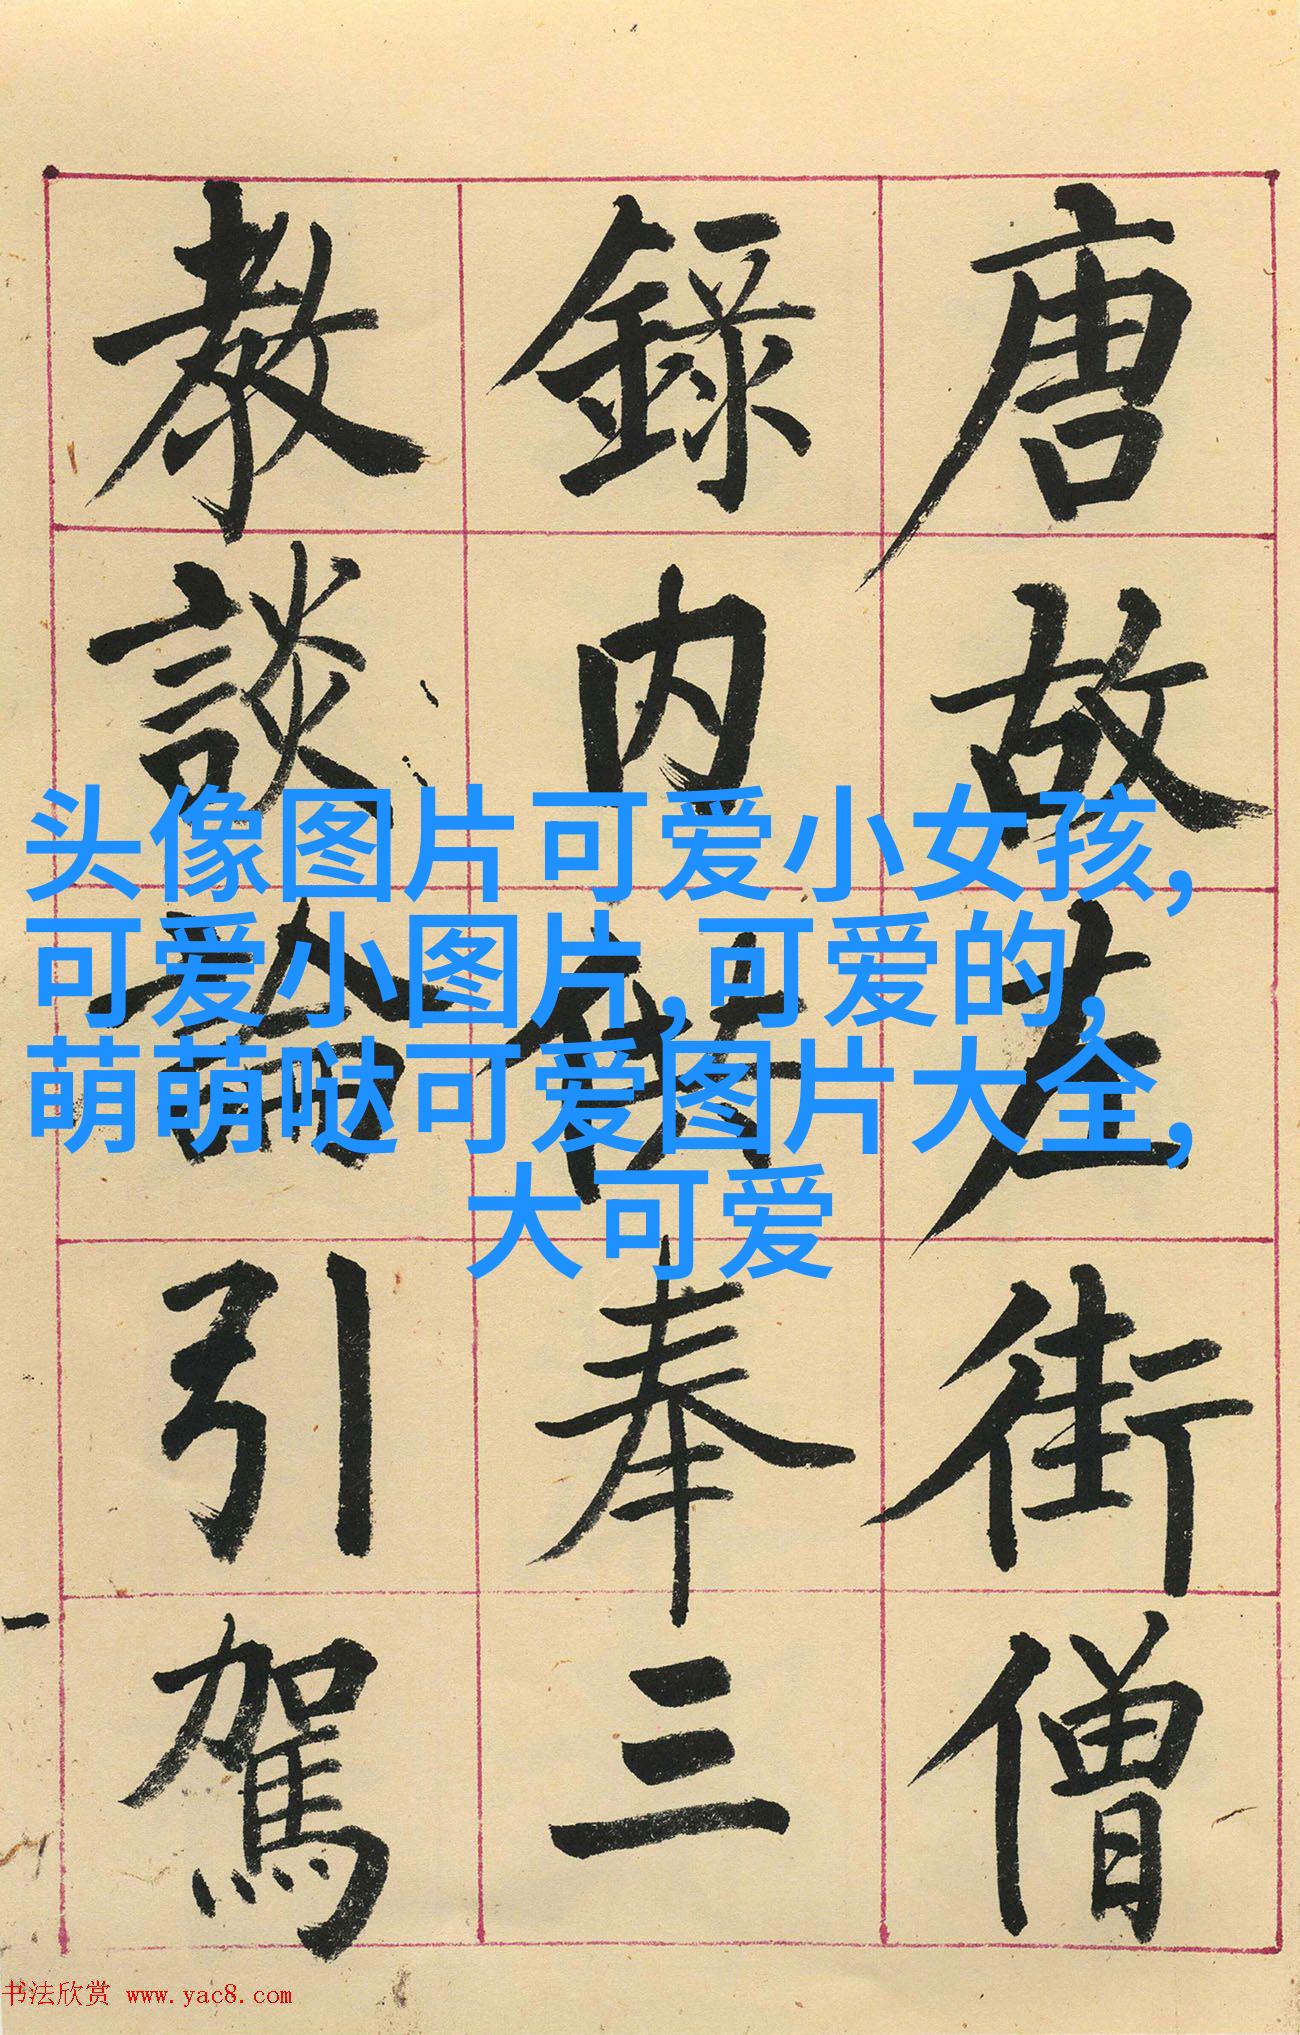 唐故左街僧
錄内供奉三
教談論引駕
头像图片可爱小女孩,
可爱小图片,可爱的,
萌萌哒可爱图片大全,
大可爱
书法欣赏 www.yac8.com